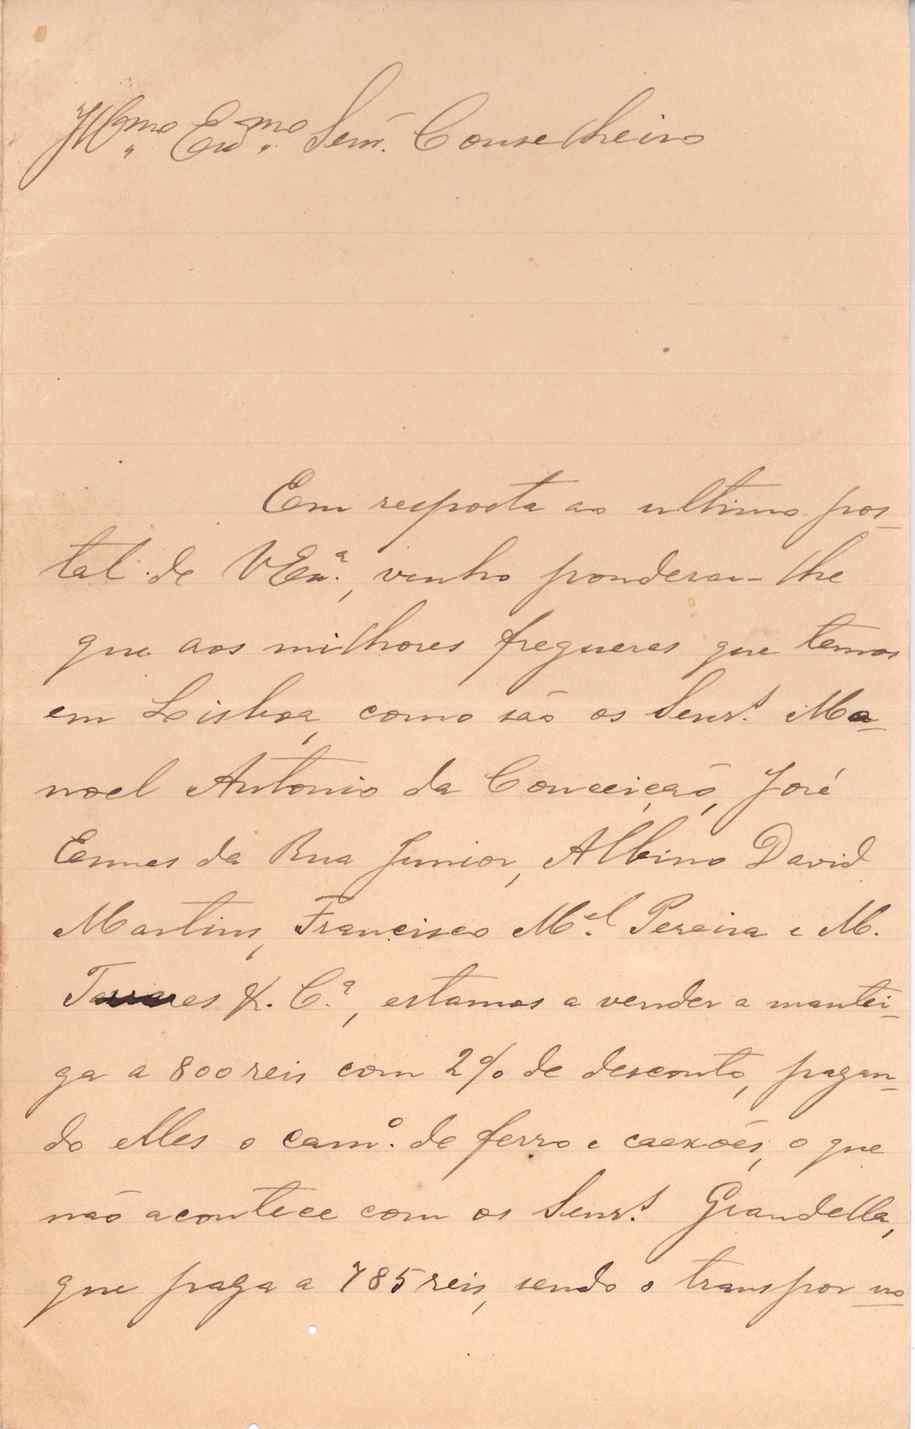 Illmo Exmo Senr. Conselheiro
Em resposta ao ultimo pos-
tal de VExª., venho ponderar-lhe
que aos milhores freguezes que temos
em Lisboa, como são os Senrs. Ma-
noel Antonio da Conceição, José
Ennes da Rua Junior, Albino David
Martins, Francisco Mel. Pereira e M.
&. Cª, estamos a vender a mantei-
ga a 800 reis com 2% de desconto, pagan-
do elles o camº. de ferro e caexões, o que
não acontece com os Senrs. Grandella,
que paga a 785 reis, sendo o transpor no